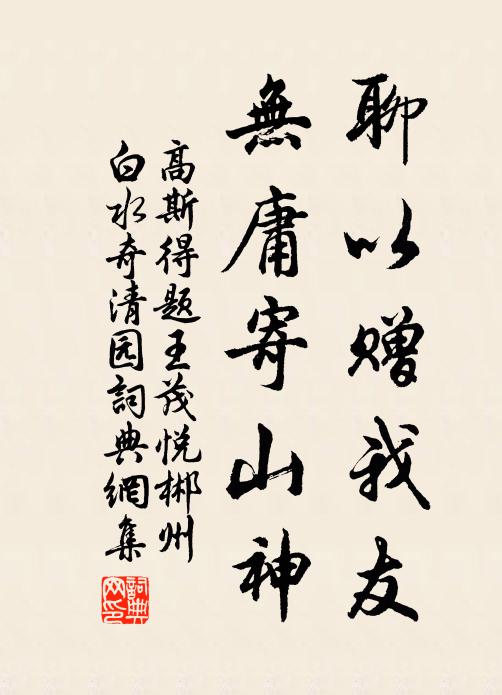 聊以赠我友
無庸寄山神
高斯得题王茂悦郴州
白水奇清园詞典網集
詞典网印